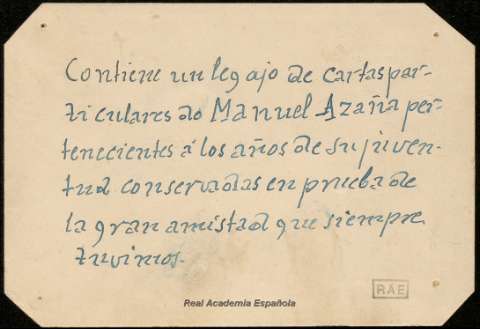 Contiene un legajo de cartas par-
ticulares de Manuel Azaña per-
tenecientes á los años de su juven-
tud conservadas en prueba de
la gran amistad que siempre
tuvimos.
RAE
Real Academia Española